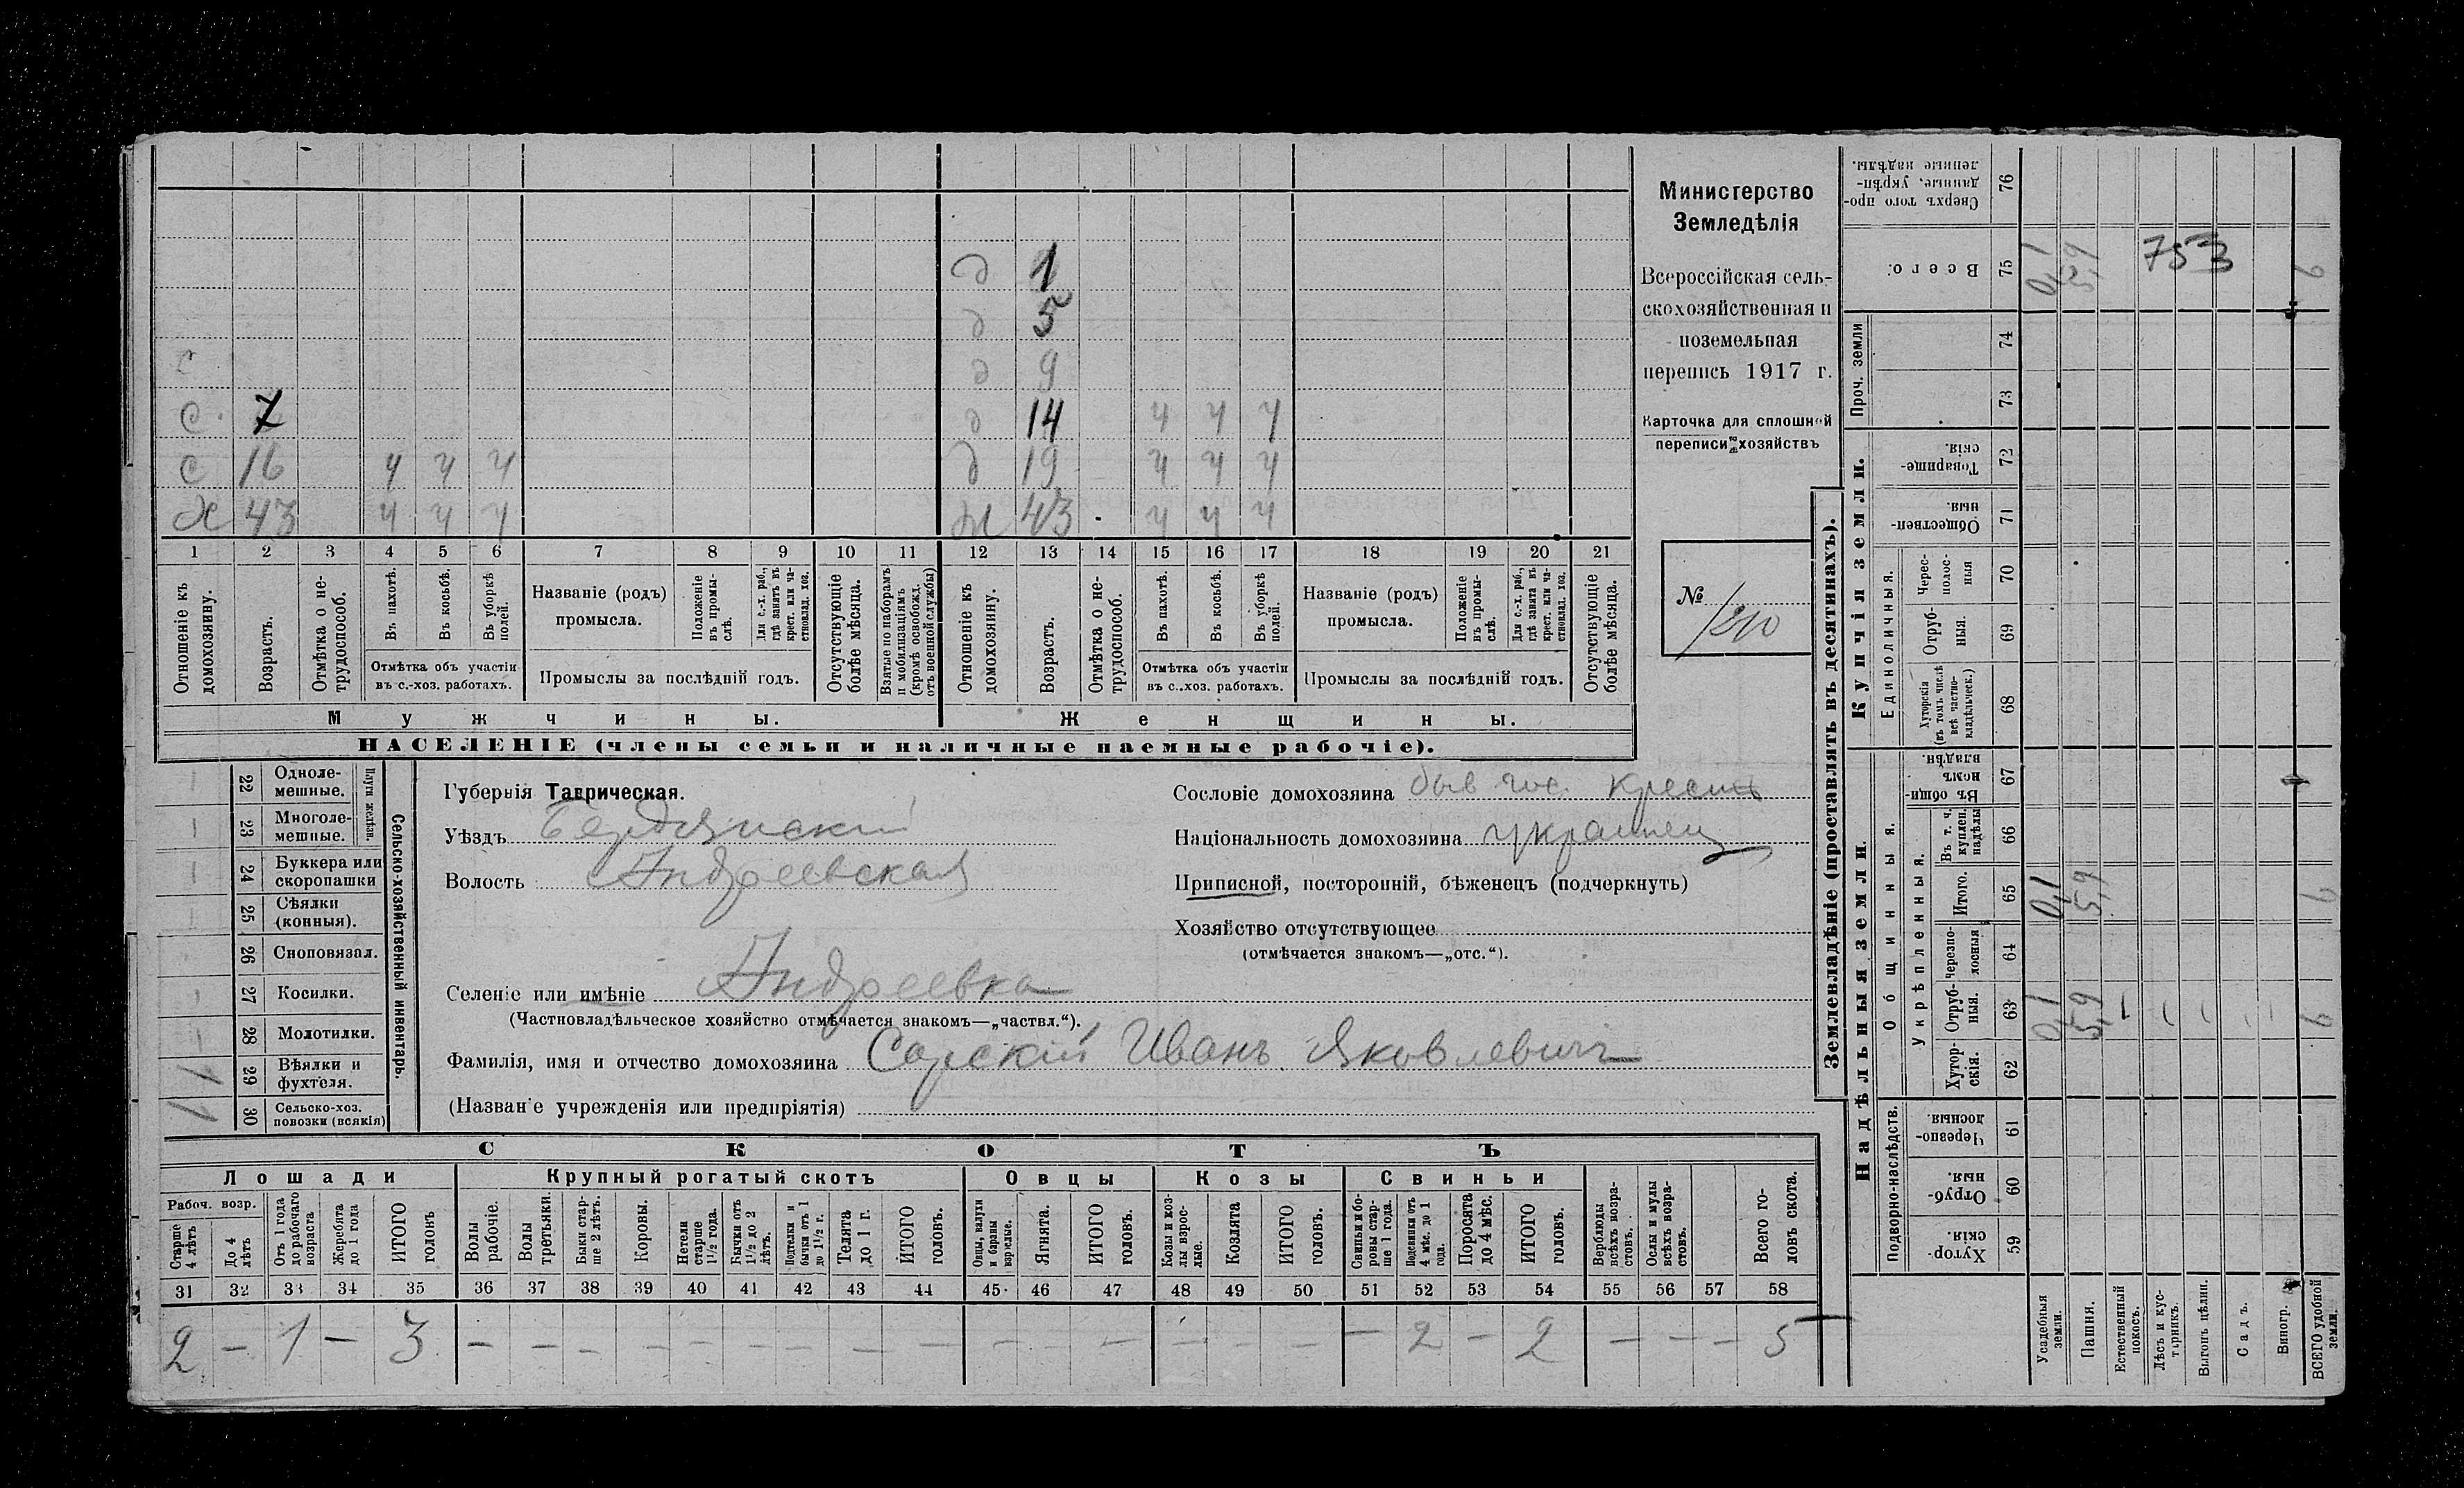 Министерство
Земледѣлія
Всероссійская сель-
скохозяйственная и
поземельная
перепись 1917 г.
Карточка для сплошной
переписи хозяйствъ
№
753
д 1
д 5
с
д 9
с 7
д 14 ч ч ч
с 16 ч ч ч
д 19 ч ч ч
х 43 ч ч ч
ж 43 ч ч ч
1 2 3 4 5 6 7 8 9 10 11 12 13 14 15 16 17 18 19 20 21
Отношеніе къ домохозяину.
Возрастъ.
Отмѣтка о не-трудоспособ.
Въ пахотѣ.
Въ косьбѣ.
Въ уборкѣ полей.
Отмѣтка объ участіи
въ с.-хоз. работахъ.
Названіе (родъ)
промысла.
Положеніе въ промы-слѣ.
Для с.-х. раб., гдѣ занятъ въ крест. или ча-стновлад. хоз.
Промыслы за послѣдній годъ.
Отсутствующіе болѣе мѣсяца.
Взятые по наборамъ и мобилизаціямъ (кромѣ освобожд. отъ военной службы)
Отношеніе къ домохозяину.
Возрастъ.
Отмѣтка о не-трудоспособ.
Въ пахотѣ.
Въ косьбѣ.
Въ уборкѣ полей.
Отмѣтка объ участіи
въ с.-хоз. работахъ.
Названіе (родъ)
промысла.
Положеніе въ промы-слѣ.
Для с.-х. раб., гдѣ занята въ крест. или ча-стновлад. хоз.
Промыслы за послѣдній годъ.
Отсутствующіе болѣе мѣсяца.
Мужчины.
Женщины.
НАСЕЛЕНІЕ (члены семьи и наличные наемные рабочіе).
Сельско-хозяйственный инвентарь.
Плуги желѣзн.
22 Одноле-мешные.
23 Многоле-мешные.
24 Буккера или скоропашки
25 Сѣялки (конныя).
26 Сноповязал.
27 Косилки.
28 Молотилки.
29 Вѣялки и фухтеля. 1
30 Сельско-хоз. повозки (всякія) 1
Губернія Таврическая.
Уѣздъ Бердянскій
Волость Андреевская
Селеніе или имѣніе Андреевка
(Частновладѣльческое хозяйство отмѣчается знакомъ—„частвл.“).
Фамилія, имя и отчество домохозяина Сарскій Иванъ Яковлевичъ
(Названіе учрежденія или предпріятія)
Сословіе домохозяина быв гос. крест
Національность домохозяина украинец
Приписной, посторонній, бѣженецъ (подчеркнуть)
Хозяйство отсутствующее
(отмѣчается знакомъ—„отс.“).
СКОТЪ
Лошади
Крупный рогатый скотъ
Овцы
Козы
Свиньи
Рабоч. возр.
Старше 4 лѣтъ
До 4 лѣтъ
Отъ 1 года до рабочаго возраста
Жеребята до 1 года
ИТОГО головъ
Волы рабочіе.
Волы третьяки.
Быки стар-ше 2 лѣтъ.
Коровы.
Нетели старше 1 1/2 года.
Бычки отъ 1 1/2 до 2 лѣтъ.
Подтелки и бычки отъ 1 до 1 1/2 г.
Телята до 1 г.
ИТОГО головъ.
Овцы, валухи и бараны взрослые.
Ягнята.
ИТОГО головъ.
Козы и коз-лы взрос-лые.
Козлята
ИТОГО головъ.
Свиньи и бо-ровы стар-ше 1 года.
Подсвинки отъ 4 мѣс. до 1 года.
Поросята до 4 мѣс.
ИТОГО головъ.
Верблюды всѣхъ возра-стовъ.
Ослы и мулы всѣхъ возра-стовъ.
Всего го-ловъ скота.
31 32 33 34 35 36 37 38 39 40 41 42 43 44 45 46 47 48 49 50 51 52 53 54 55 56 57 58
2 – 1 – 3 – – – – – – – – – – – – – – – – 2 – 2 – – – 5
Землевладѣніе (проставлять въ десятинахъ).
Надѣльныя земли.
Купчія земли.
Проч. земли
Подворно-наслѣдств.
Общинныя.
Укрѣпленныя.
Единоличныя.
59 Хутор-скія.
60 Отруб-ныя.
61 Черезпо-лосныя.
62 Хутор-скія.
63 Отруб-ныя. 0,1 5,9 6
64 Черезпо-лосныя
65 Итого. 0,1 5,9 6
66 Въ т. ч. куплен. надѣлы
67 Въ общи-номъ владѣн.
68 Хуторскія (въ томъ числѣ всѣ частно-владѣльческ.)
69 Отруб-ныя.
70 Черес-полос-ныя
71 Обществен-ныя
72 Товарище-скія.
73
74
75 Всего. 0,1 5,9 6
76 Сверхъ того про-данные, укрѣп-ленные надѣлы.
Усадебныя земли.
Пашня.
Естественный покосъ.
Лѣсъ и кус-тарникъ.
Выгонъ цѣлин.
Садъ.
Виногр.
ВСЕГО удобной земли.